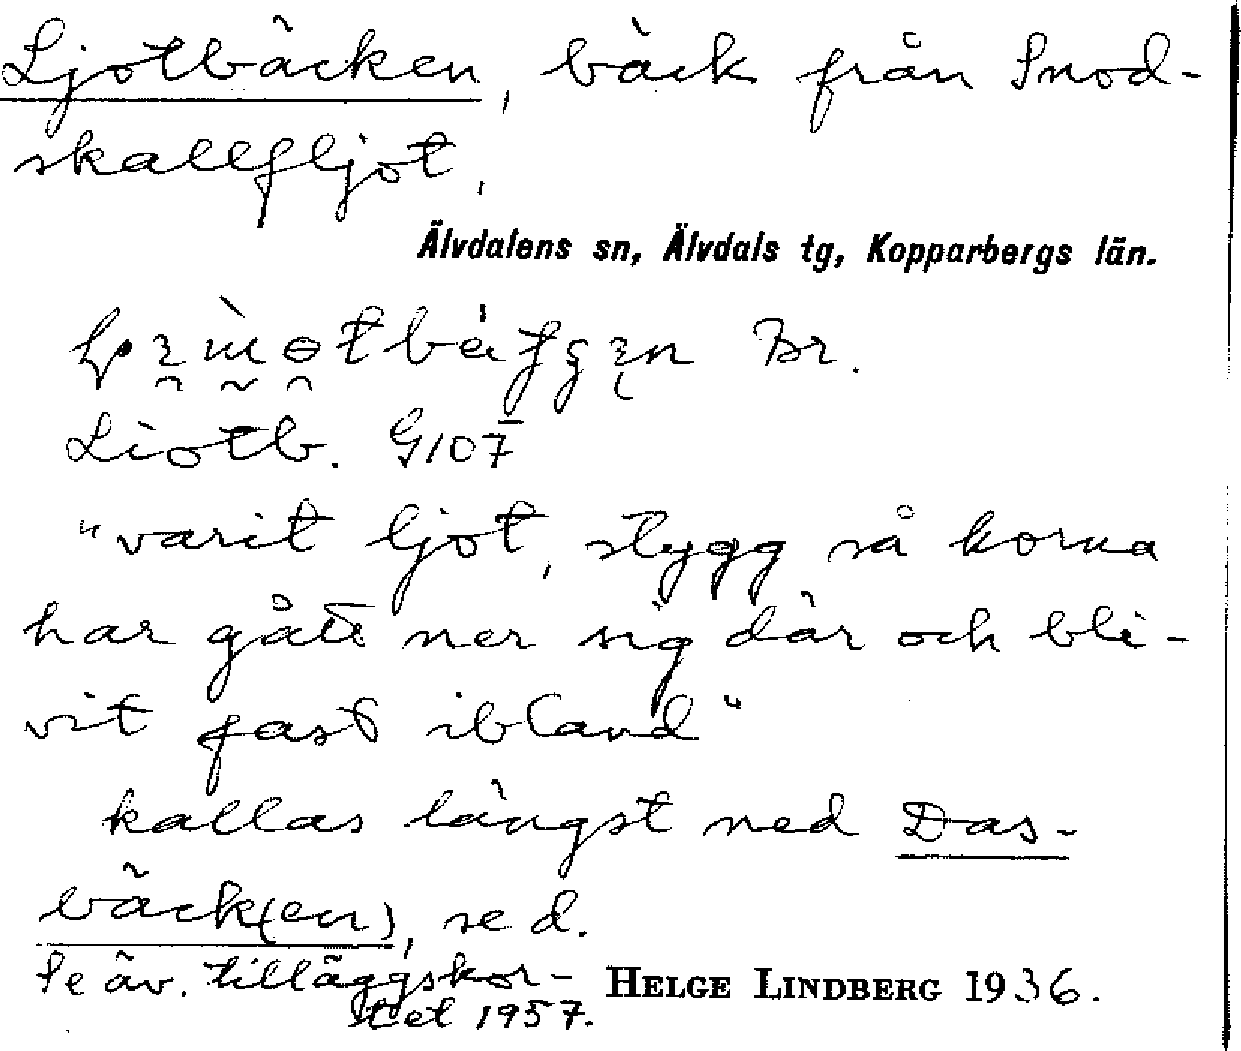 Ljotbäcken, bäck från Snod-
skallfljot,
Älvdalens sn, Älvdals tg, Kopparbergs län.
Br.
Liotb. G107
"varit ljot, stygg så korna
har gått ner sig där och bli-
vit fast ibland"
kallas längst ned Das-
bäck(en), se d.
Se äv. tilläggskor-
tet 1957.
HELGE LINDBERG 1936.